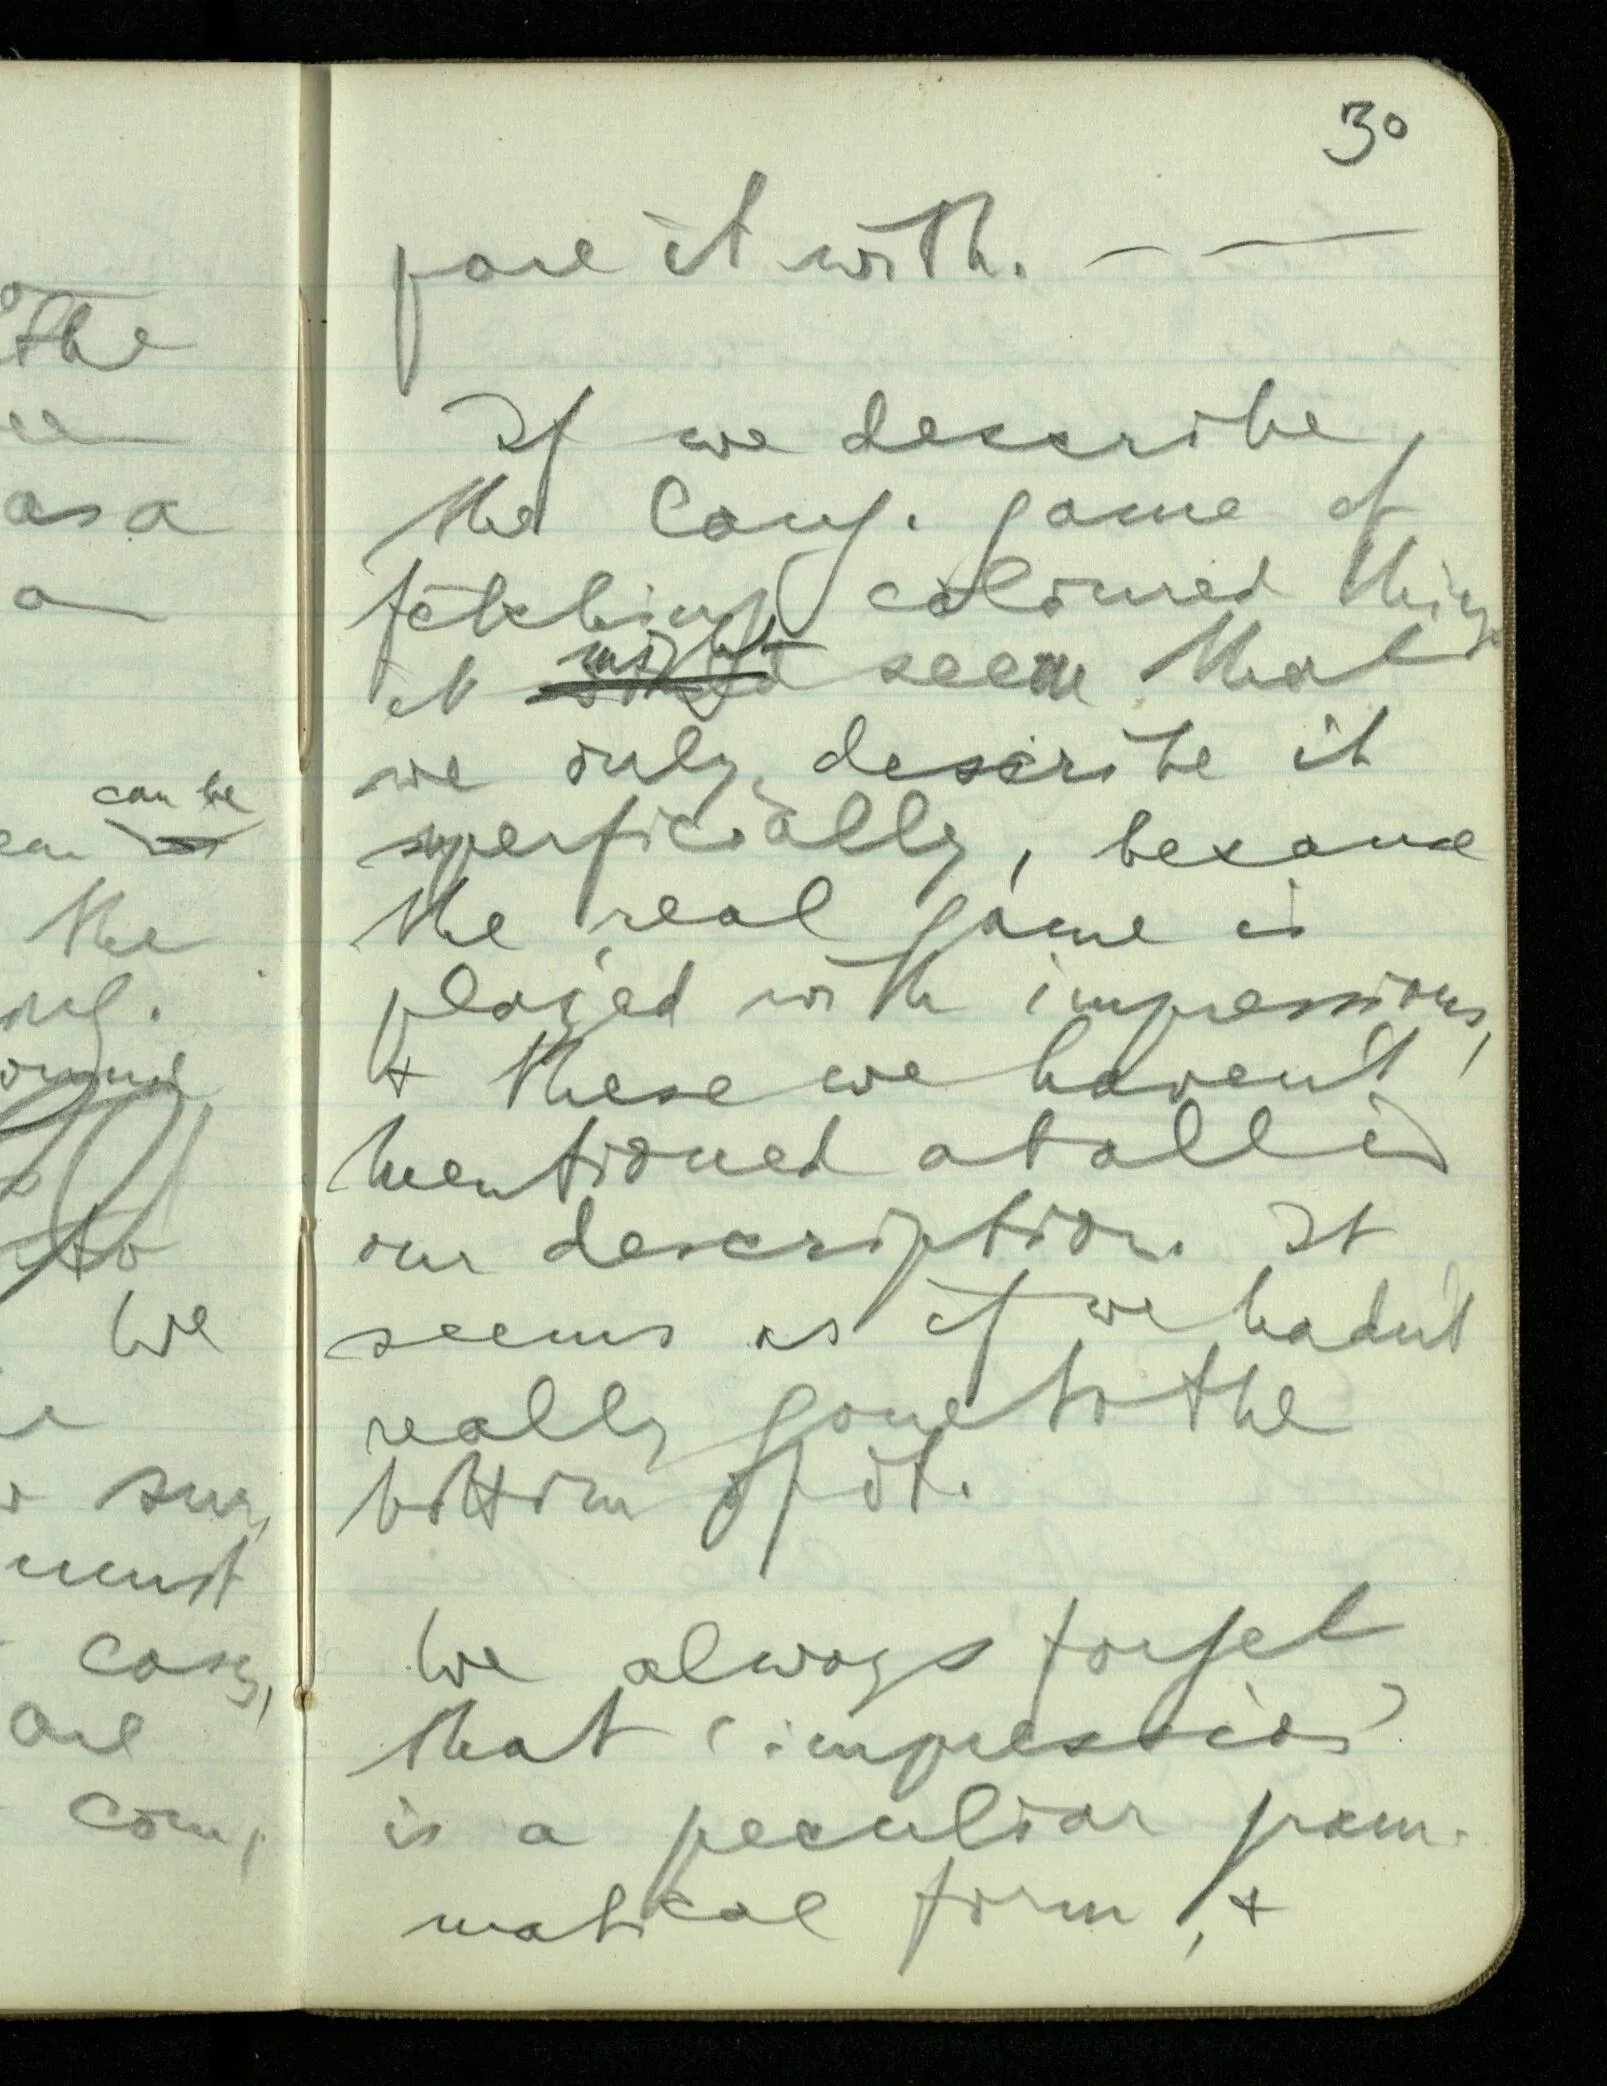 the
as a
a
can be
the
We
sur
must
case,
are
com,
30
pare it with. — —
If we describe
the lang. game of
fetching coloured things
it might seem that
we only describe it
superficially, because
the real game is
played with impressions,
+ these we haven't
mentioned at all in
our description. It
seems as if we hadn't
really gone to the
bottom of it.
We always forget
that 'impression'
is a peculiar gram-
matical form, +